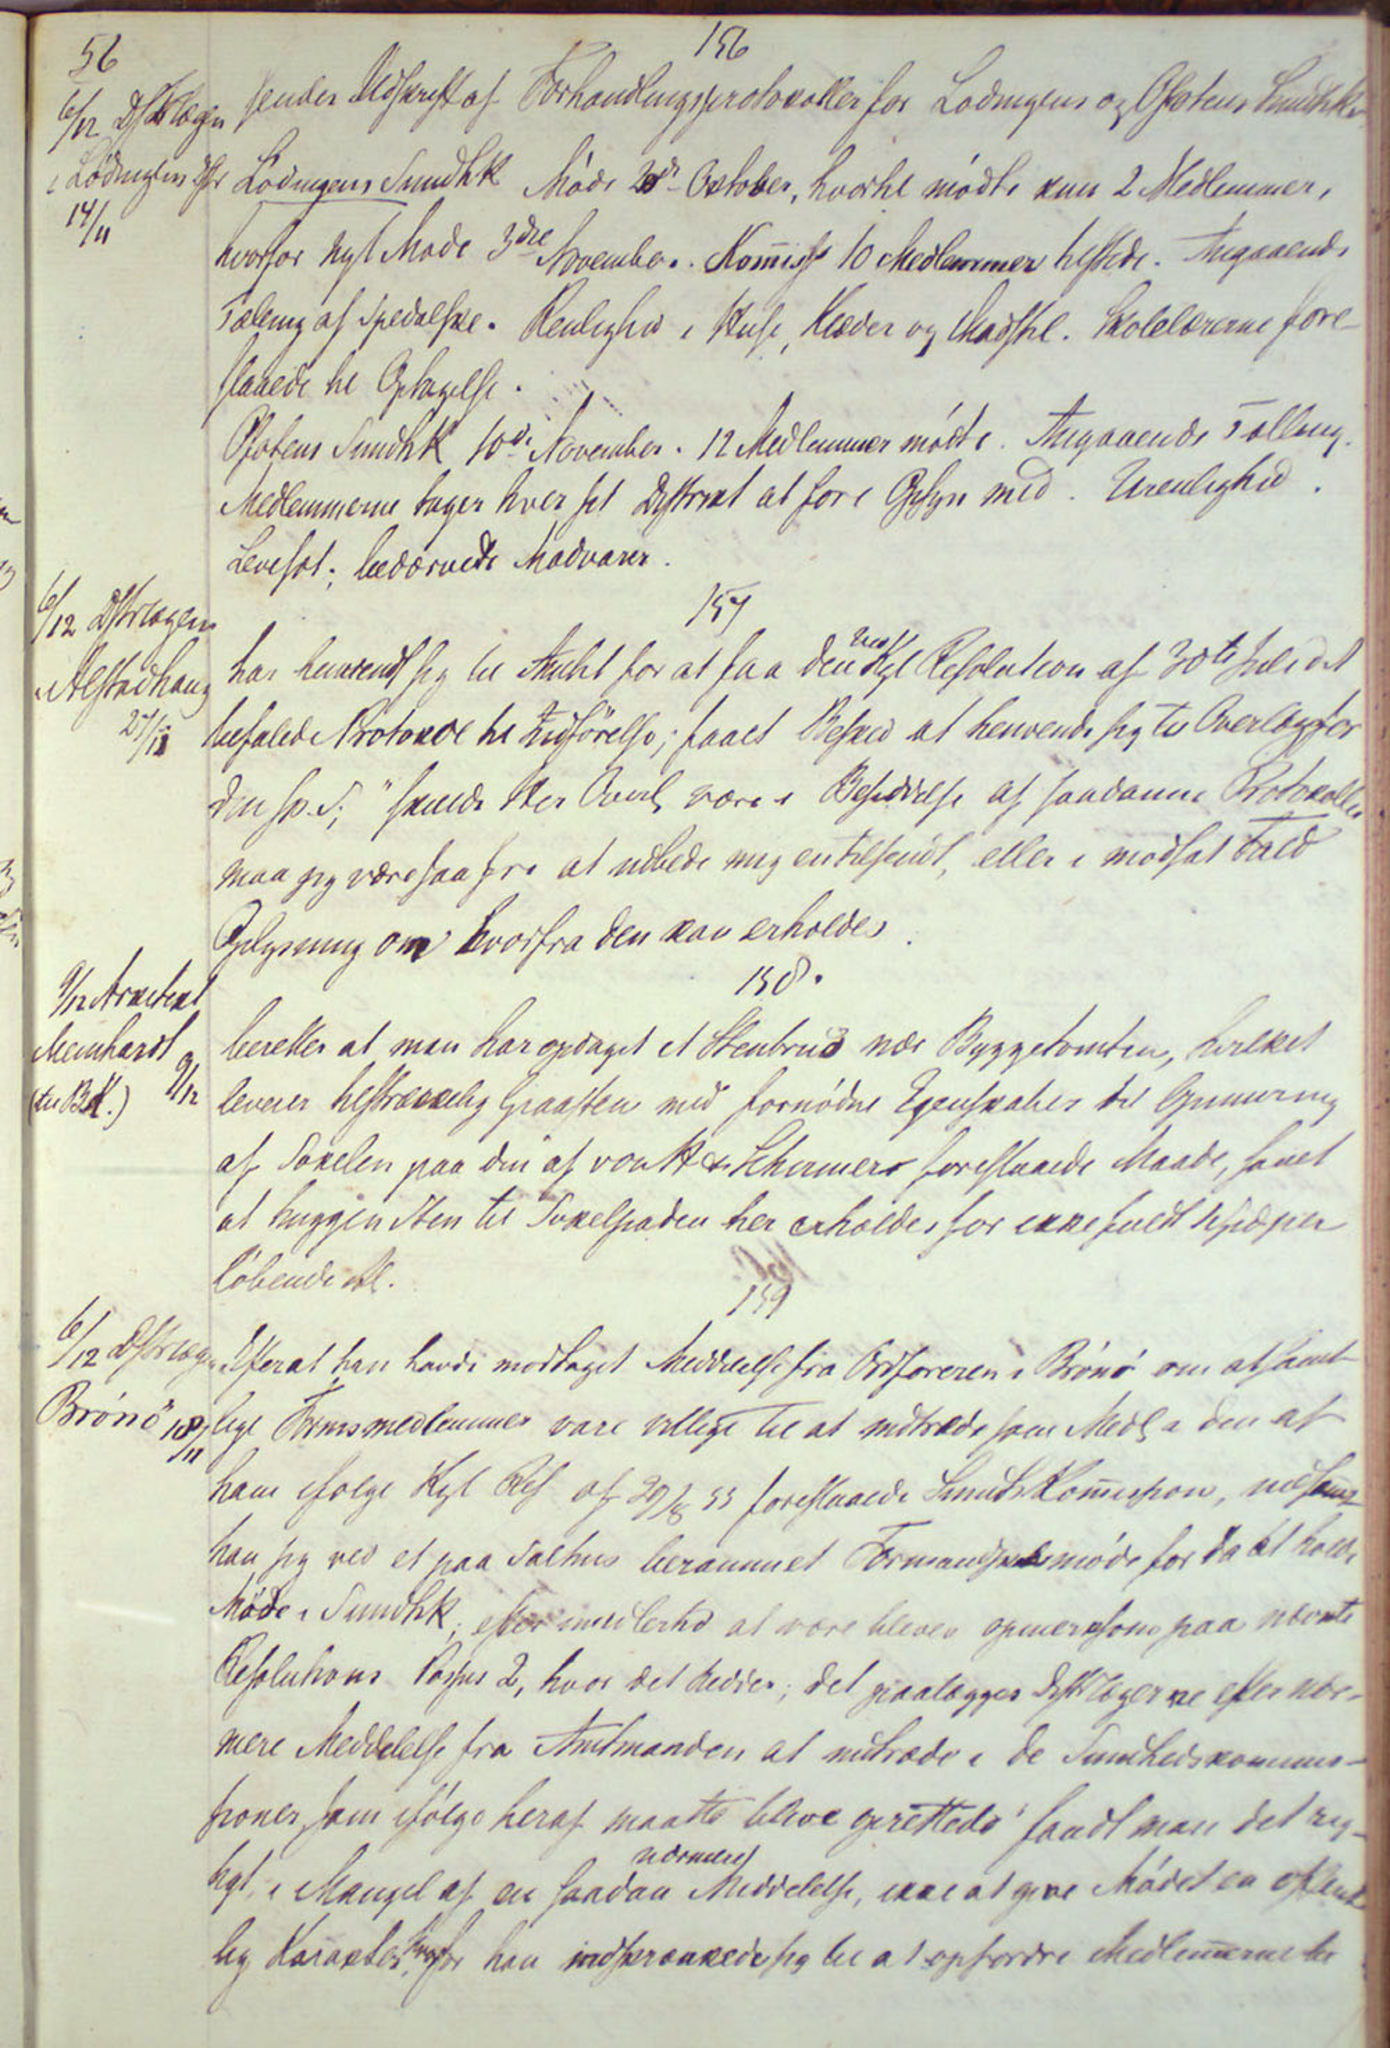 56
156
6/12 Distrlægen
i Lødingens Distr
14/11
sender Udskrift af Forhandlingsprotokoller for Lødingens og Ofotens Sundhk
Lødingens Sundhk Møde 20de October, hvortil mødte kun 2 Medlemmer,
hvorfor nyt Møde 3die November. Komiss 10 Medlemmer tilstede. Angaaende
Tæling af Spedalske. Renlighed i Huse, Klæder og Madstel. Skolelærerne fore-
slaaede til Optagelse.
Ofotens Sundhk 10de November. 12 Medlemmer mødte. Angaaende Tælling.
Medlemmerne tager hver sit Distrikt at føre Opsyn med. Urenlighed.
Levesæt; bedærvede Madvarer.
157
6/12 Distrlægen
i Alstadhaug
27/11
har henvendt sig til Amtet for at faa den ved Kgl Resolution af 30te Juli d A
befalede Protokol til Indførelse; faaet Besked at henvende sig til Overlægen for
den sp. S; "skulde Hr Overl være i Besiddelse af saadanne Protokoller
maa jeg være saa fri at udbede mig en tilsendt, eller i modsat Fald
Oplysning om hvorfra den kan erholdes.
158.
9/12 Arkitekt
Meinhardt
(til BK.) 9/12
beretter at man har opdaget et Stenbrud nær Byggetomten, hvilket
leverer tilstrækkelig Graasten med fornødne Egenskaber til Opmuring
af Sokelen paa den af von H & Schirmer foreslaaede Maade, samt
at huggen Sten til Sokelfladen her erholdes for ikke fuldt
løbende Al.
159
6/12 Distrlægen
Brønø 18/11
Efter at han havde modtaget Meddelelse fra Ordføreren i Brønø om at samt-
lige Formsmedlemmer vare villige til at indtræde som Medl i den af
ham ifølge Kgl Res af 30/7 55 foreslaaede Sundhs Komission, indfandt
han sig ved et paa Salhus berammet Formandskabsmøde for da at holde
Møde i Sundhk; efter imidlertid at være bleven opmerksom paa nævnte
Resolutions Passus 2, hvor det hedder; det paalægges Distrlægerne efter nær-
mere Meddelelse fra Amtmanden at indtræde i de Sundhedskommis-
sioner, som ifølge heraf maatte blive oprettede" fandt man det rig-
tigt, i Mangel af en saadan nærmere Meddelelse, ikke at give Mødet en offent-
lig Karakter, hvorfor han indskrænkede sig til at opfordre Medlemerne til